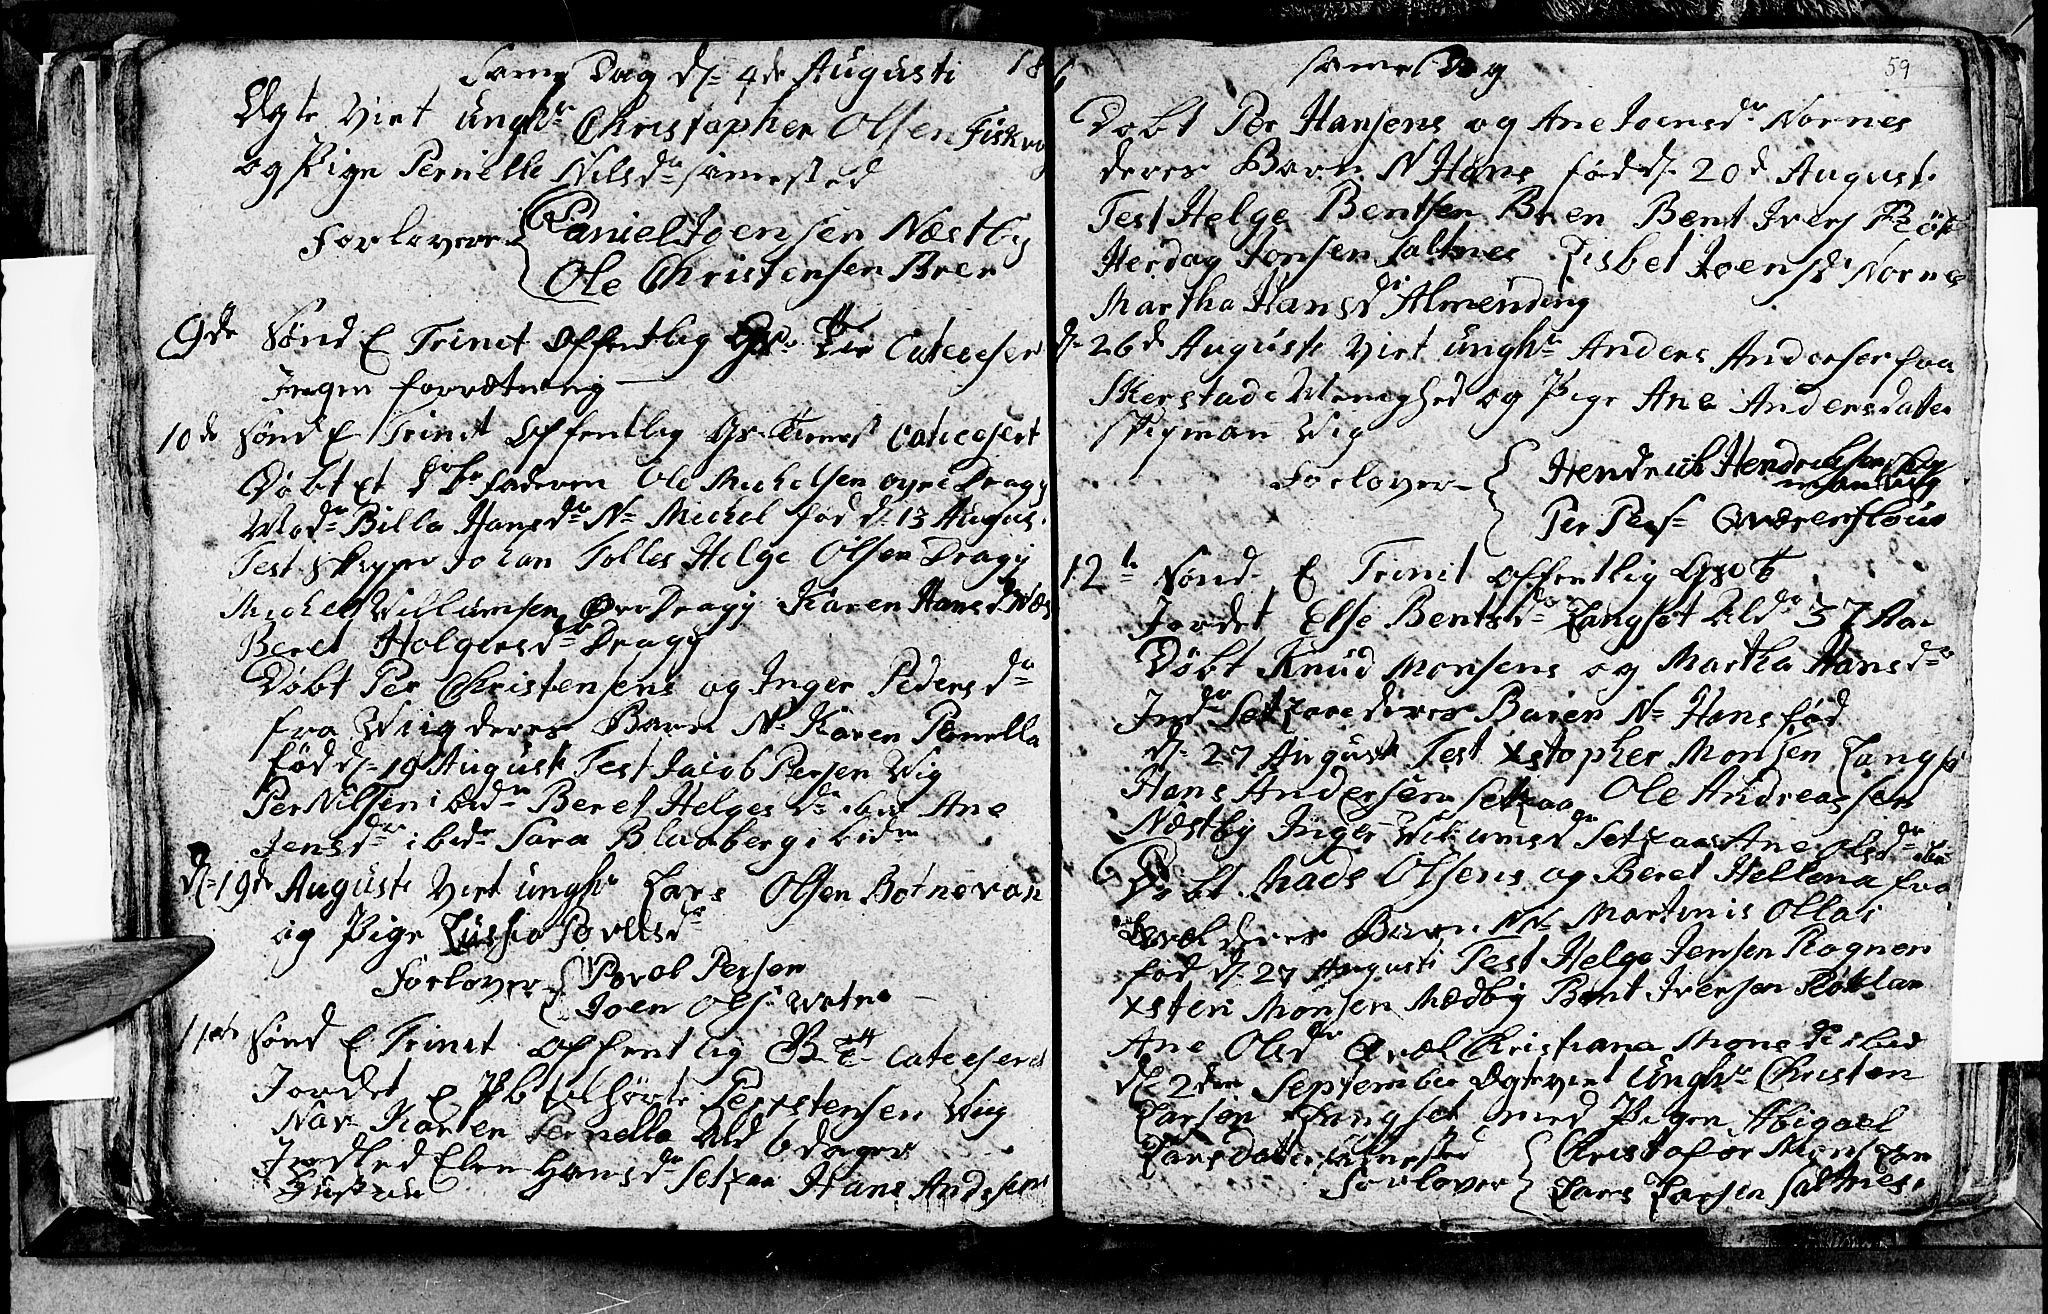 Same Dag d. 4de Augusti
Ægte Viet ungk Christopher Olsen
og Pige Pernille Nilsdr samested
Forlovere Daniel Joensen Næstby
Ole Christensen Bren
9de Sønd E Trinit Offentlig Catecesert
Ingen forrætning
10de Sønd E Trinit Offentlig Catecesert
Døbt et faderen Ole Michelsen øvre Dragg
Mod Billa Hansdr N Michel fød d. 13 August
Test Johan Tolles Helge Olsen Dragg
Michel Villumsen Dragg Karen Hansd
Beret Holgersdr Dragg
Døbt Per Christensens og Inger Pedersdr
fra Wiig deres Barn N Karen Pernella
fød d. 19 Augusti Test Jacob Persen Wig
Per Nilsen ibid Beret Helgesdr ibid Ane
Jensdr ibid Sara Bladberg ibid
d. 19de Augusti Viet ungk Lars Olsen Botnevan
og Pige Lussia Povelsdr
Forlover Povel Persen
Joen Ols Watne
11te Sønd E Trinit Offentlig Cateceserd
Jordet tilhørte Per xstensen Wiig
Nav Karen Pernella Ald 6 dager
Jordfed Elen Hansdr Setzaa Hans Andssens
Hustrue
59
same Dag
Døbt Per Hansens og Ane Joensdr Nornes
deres Barn N Hans fød d. 20d Augusti
Test Helge Bentsen Bren Bent Ivers
Herdag Jonsen Saltnes Lisbet Joensd Nornes
Martha Hansdr Almending
d. 26d Augusti Viet ungk Anders Andersen fra
Skierstad Menighed og Pige Ane Andersdatter
Wig
Forlover Hendrich Hendrichsen
Per Pers Qværenfloug
12te Sønd E Trinit Offentlig
Jordet Else Bentsdr Langset Ald 37 Aar
Døbt Knud Monsens og Martha Hansdr
Setzaae deres Baren N Hans fød
d. 27 August Test xstopher Monsen Langset
Hans Andersen Setzaa Ole Andreassen
Næstby Inger Wilumsdr Setzaa Ane Olsdr ibid
Døbt Mads Olsens og Beret Hellena fra
Qvæl deres Barn N Martinis Ollai
fød d. 27 Augusti Test Helge Jensen Rognen
xsten Monsen Mædby Bent Iversen Røklan
Ane Olsdr Qvæl Christiana Monsdr ibid
d. 2den September Ægteviet ungk Christen
Larsen Langset med Pigen Abigael
Larsdatter samested Christofor Monsen
Forlover Lars Larsen Saltnes